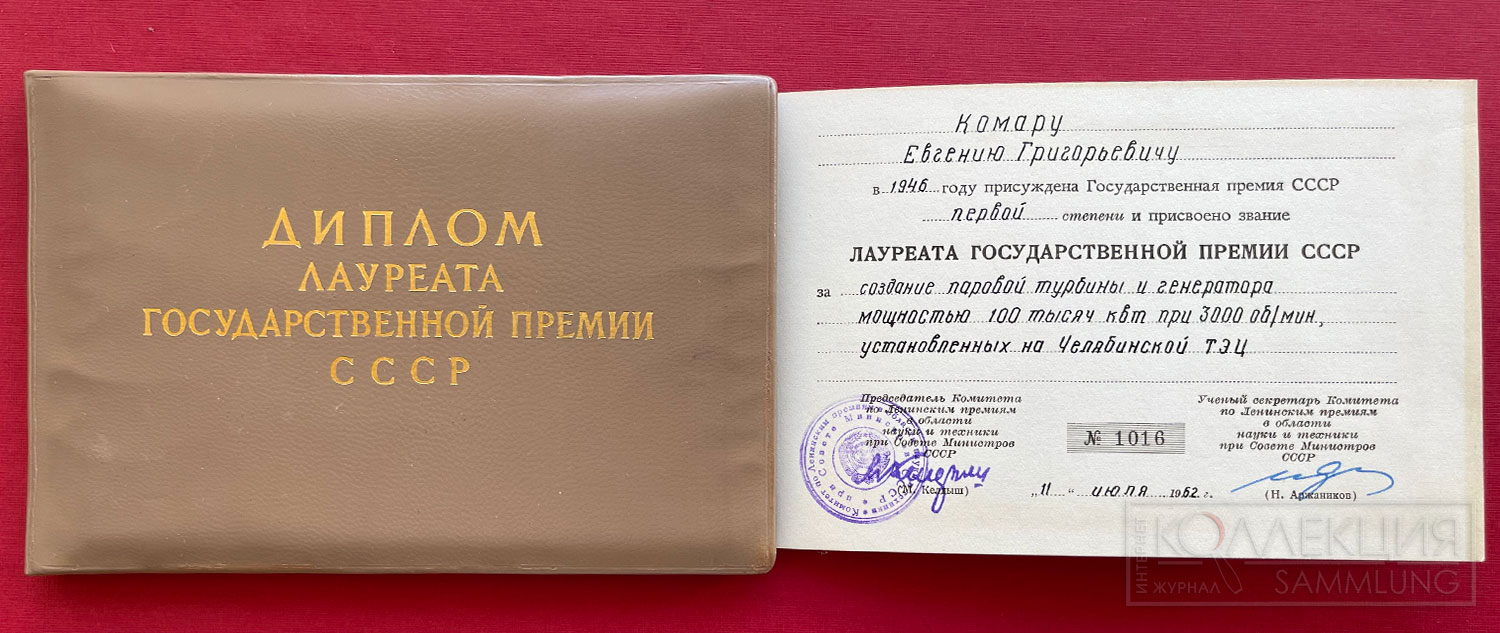 ДИПЛОМ
ЛАУРЕАТА
ГОСУДАРСТВЕННОЙ ПРЕМИИ
СССР
Комару
Евгению Григорьевичу
в 1946 году присуждена Государственная премия СССР
первой степени и присвоено звание
ЛАУРЕАТА ГОСУДАРСТВЕННОЙ ПРЕМИИ СССР
за создание паровой турбины и генератора
мощностью 100 тысяч квт при 3000 об/мин.,
установленных на Челябинской ТЭЦ
Председатель Комитета
по Ленинским премиям
в области
науки и техники
при Совете Министров
СССР
(М. Келдыш)
№ 1016
„11“ июля 1962 г.
Ученый секретарь Комитета
по Ленинским премиям
в области
науки и техники
при Совете Министров
СССР
(Н. Аржаников)
ИНТЕРНЕТ
ЖУРНАЛ
КОЛЛЕКЦИЯ
SAMMLUNG